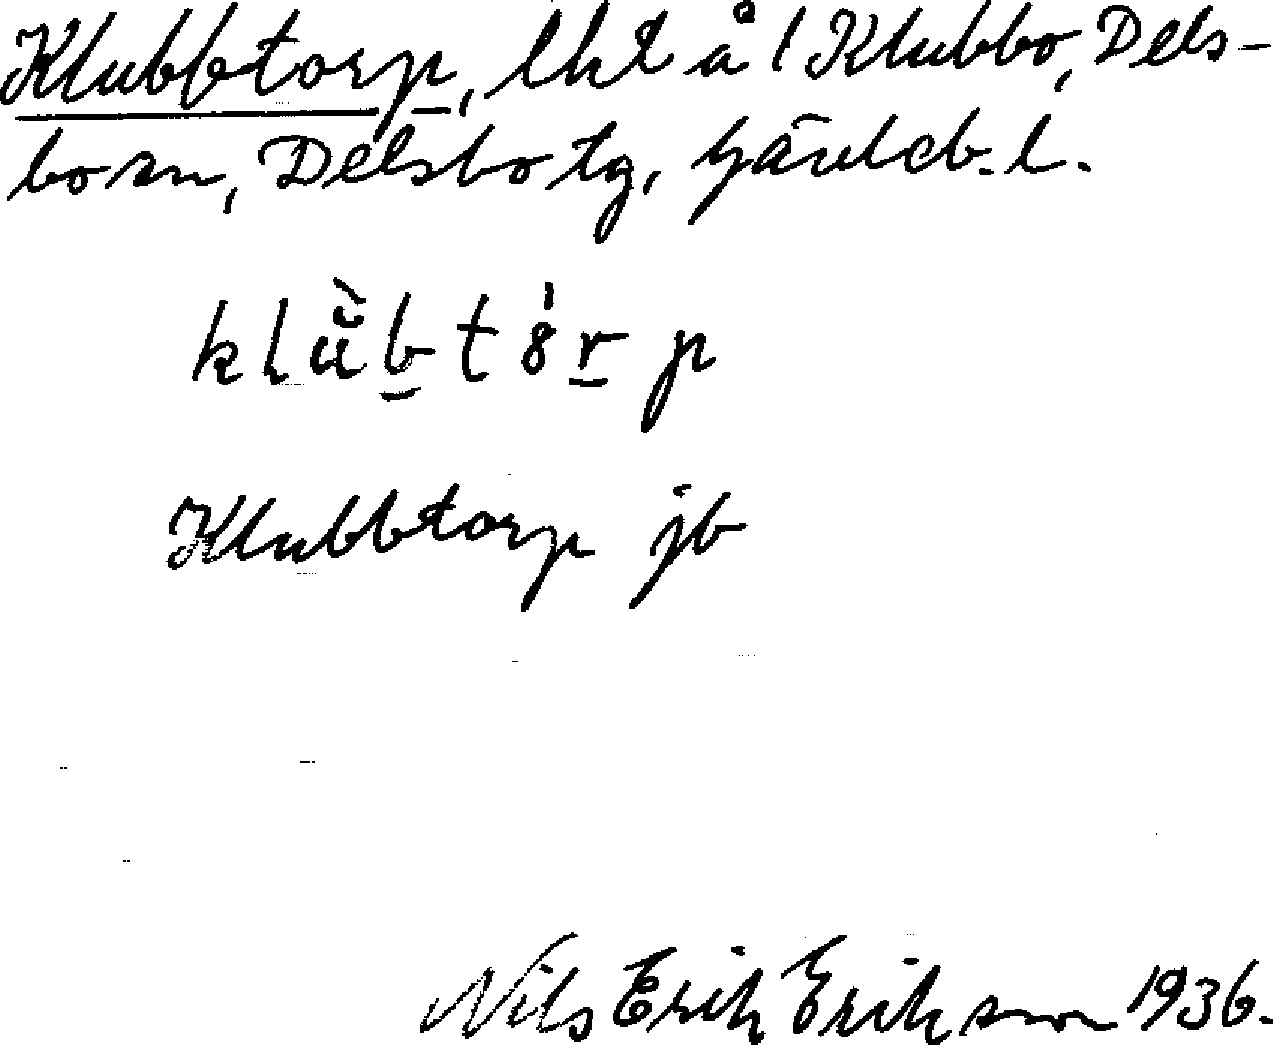 Klubbtorp, lht å 1 Klubbo, Dels-
bo sn, Delsbo tg, Gävleb. l.
klŭ̀btó̤rp
Klubbtorp jb
Nils Erik Eriksson 1936.